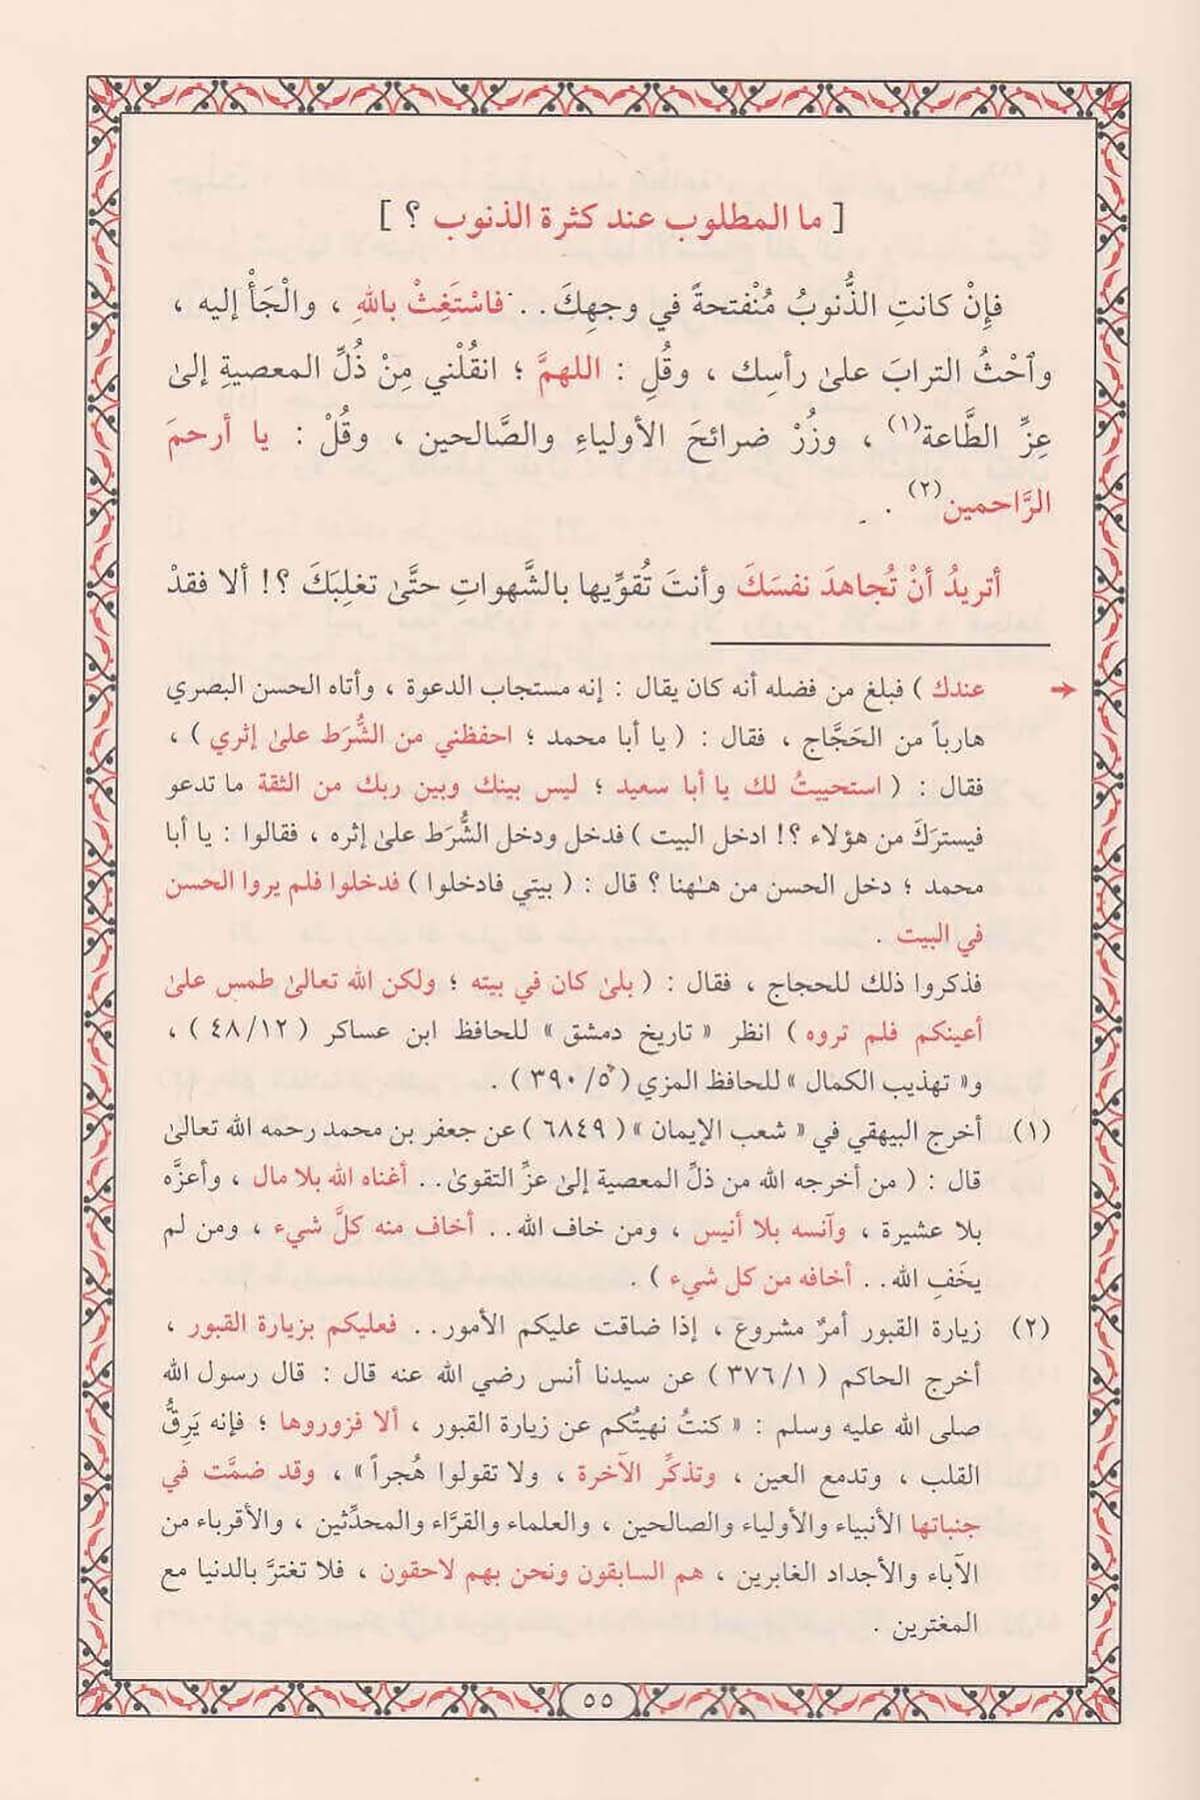 [ ما المطلوب عند كثرة الذنوب ؟ ]
فإِنْ كانتِ الذُّنوبُ مُنْفتحةً في وجهِكَ . . فاسْتَغِثْ باللهِ ، والْجَأْ إليه ،
وٱحْثُ الترابَ علىٰ رأسِك ، وقُلِ : اللهمَّ ؛ انقُلْني مِنْ ذُلِّ المعصيةِ إلىٰ
عِزِّ الطَّاعة(١) ، وزُرْ ضرائحَ الأولياءِ والصَّالحين ، وقُلْ : يا أرحمَ
الرَّاحمين(٢) .
أتريدُ أنْ تُجاهدَ نفسَكَ وأنتَ تُقوِّيها بالشَّهواتِ حتَّىٰ تغلِبَكَ ؟! ألا فقدْ
عندك ) فبلغ من فضله أنه كان يقال : إنه مستجاب الدعوة ، وأتاه الحسن البصري
هارباً من الحَجَّاج ، فقال : ( يا أبا محمد ؛ احفظني من الشُّرَط علىٰ إثري ) ،
فقال : ( استحييتُ لك يا أبا سعيد ؛ ليس بينك وبين ربك من الثقة ما تدعو
فيسترَكَ من هؤلاء ؟! ادخل البيت ) فدخل ودخل الشُّرَط علىٰ إثره ، فقالوا : يا أبا
محمد ؛ دخل الحسن من هـٰهنا ؟ قال : ( بيتي فادخلوا ) فدخلوا فلم يروا الحسن
في البيت .
فذكروا ذلك للحجاج ، فقال : ( بلىٰ كان في بيته ؛ ولكن الله تعالىٰ طمس علىٰ
أعينكم فلم تروه ) انظر « تاريخ دمشق » للحافظ ابن عساكر ( ٤٨/١٢ ) ،
و« تهذيب الكمال » للحافظ المزي ( ٣٩٠/٥ ) .
(١) أخرج البيهقي في « شعب الإيمان » ( ٦٨٤٩ ) عن جعفر بن محمد رحمه الله تعالىٰ
قال : ( من أخرجه الله من ذلِّ المعصية إلىٰ عزِّ التقوىٰ . . أغناه الله بلا مال ، وأعزَّه
بلا عشيرة ، وآنسه بلا أنيس ، ومن خاف الله . . أخاف منه كلَّ شيء ، ومن لم
يخَفِ الله . . أخافه من كل شيء ) .
(٢) زيارة القبور أمرٌ مشروع ، إذا ضاقت عليكم الأمور . . فعليكم بزيارة القبور ،
أخرج الحاكم ( ٣٧٦/١ ) عن سيدنا أنس رضي الله عنه قال : قال رسول الله
صلى الله عليه وسلم : « كنتُ نهيتُكم عن زيارة القبور ، ألا فزوروها ؛ فإنه يَرِقُّ
القلب ، وتدمع العين ، وتذكِّر الآخرة ، ولا تقولوا هُجراً » ، وقد ضمَّت في
جنباتها الأنبياء والأولياء والصالحين ، والعلماء والقرَّاء والمحدِّثين ، والأقرباء من
الآباء والأجداد الغابرين ، هم السابقون ونحن بهم لاحقون ، فلا تغترَّ بالدنيا مع
المغترين .
٥٥